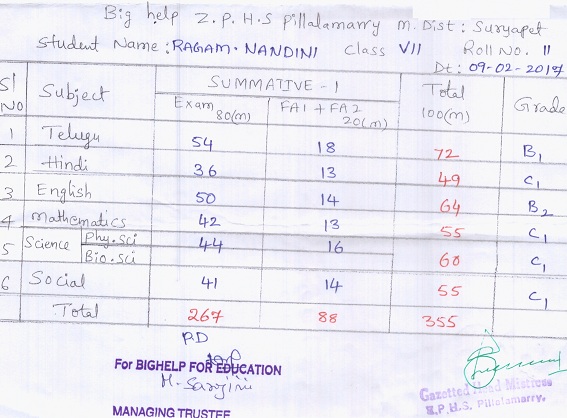 Big help Z.P.H.S pillalamarry m.Dist: Suryapet
Student Name: RAGAM. NANDINI Class VII Roll No. 11
Dt: 09-02-2017
Sl No Subject SUMMATIVE - 1 Total 100(m) Grade
Exam 80(m) FA1 + FA2 20(m)
1 Telugu 54 18 72 B1
2 Hindi 36 13 49 C1
3 English 50 14 64 B2
4 mathematics 42 13 55 C1
5 Science Phy.sci Bio.sci 44 16 60 C1
6 Social 41 14 55 C1
Total 267 88 355
P.D
For BIGHELP FOR EDUCATION
MANAGING TRUSTEE
Gazetted Mistress
Z.P.H.S. Pillalamarry.